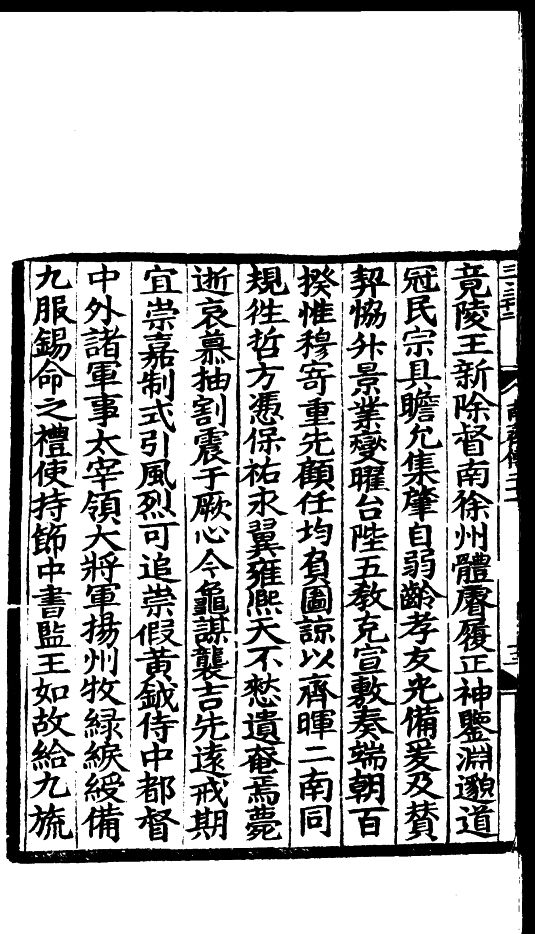 竟陵王新除督南徐州體睿履正神鑒淵邈道
冠民宗具瞻允集肇自弱齡孝友光備爰及贊
契協升景業燮曜台陛五教克宣敷奏端朝百
揆惟穆寄重先顧任均負圖諒以齊暉二南同
規往哲方憑保祐永翼雍熙天不憖遺奄焉薨
逝哀慕抽割震于厥心今龜謀襲吉先遠戒期
宜崇嘉制式引風烈可追崇假黃鉞侍中都督
中外諸軍事太宰領大將軍揚州牧緑綟綬備
九服錫命之禮使持節中書監王如故給九旒